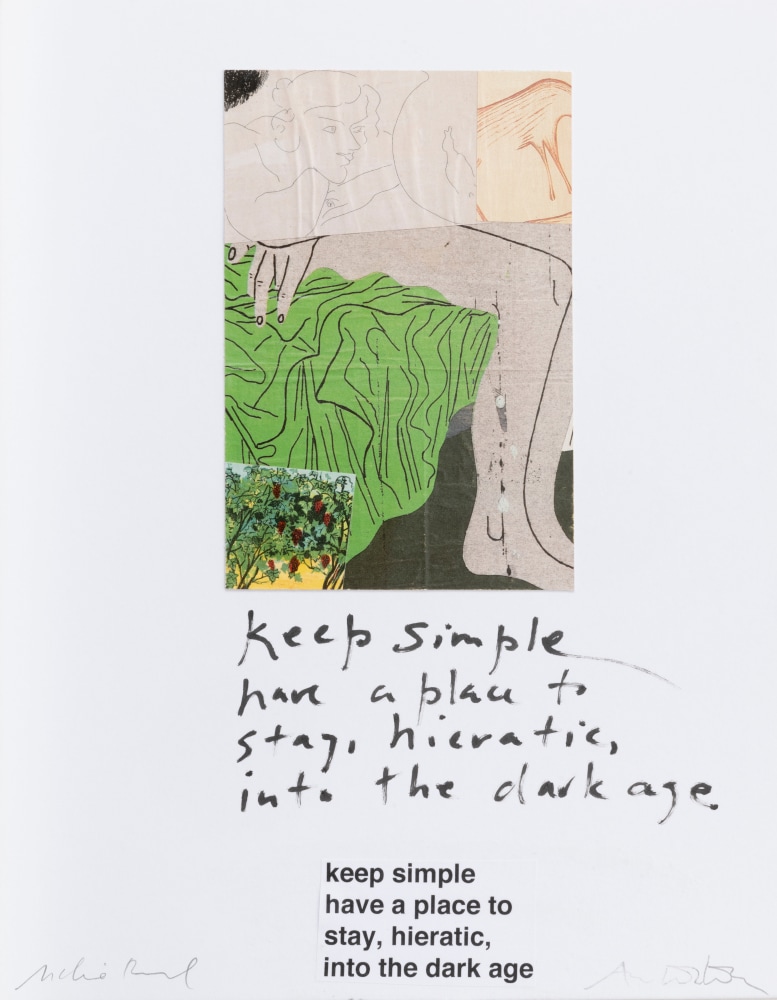 keep simple
have a place to
stay, hieratic,
into the dark age
keep simple
have a place to
stay, hieratic,
into the dark age